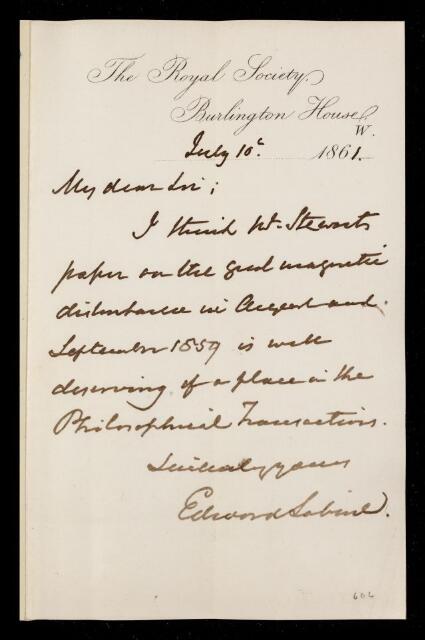 The Royal Society,
Burlington House,
W.
July 10th 1861.
My dear Sir;
I think Mr. Stewart's
paper on the great magnetic
disturbance in August and
September 1859 is well
deserving of a place in the
Philosophical Transactions.
Sincerely yours
Edward Sabine.
604